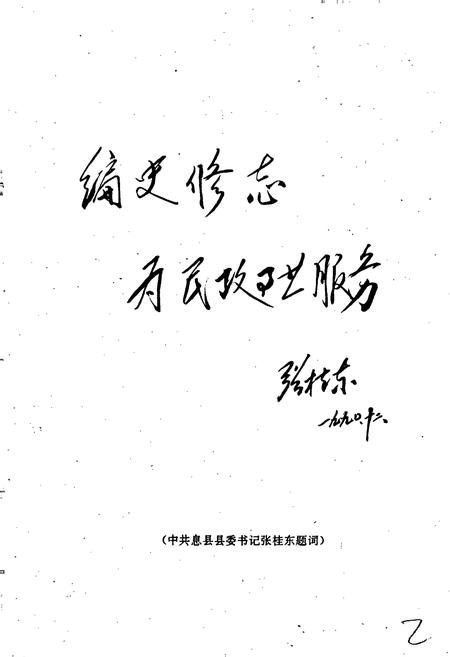 编史修志
为民政事业服务
张桂东
一九九〇.十二.
（中共息县县委书记张桂东题词）